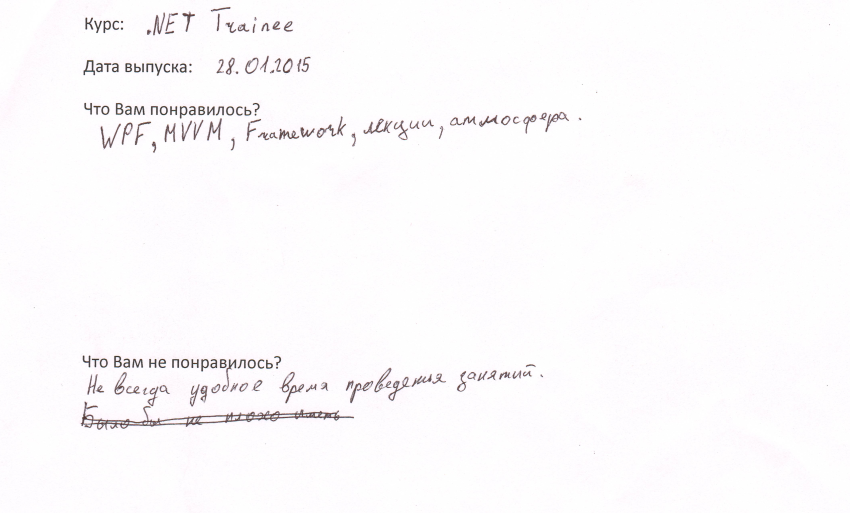 Курс: .NET Trainee
Дата выпуска: 28.01.2015
Что Вам понравилось?
WPF, MVVM, Framework, лекции, атмосфера.
Что Вам не понравилось?
Не всегда удобное время проведения занятий.
Было бы не плохо иметь